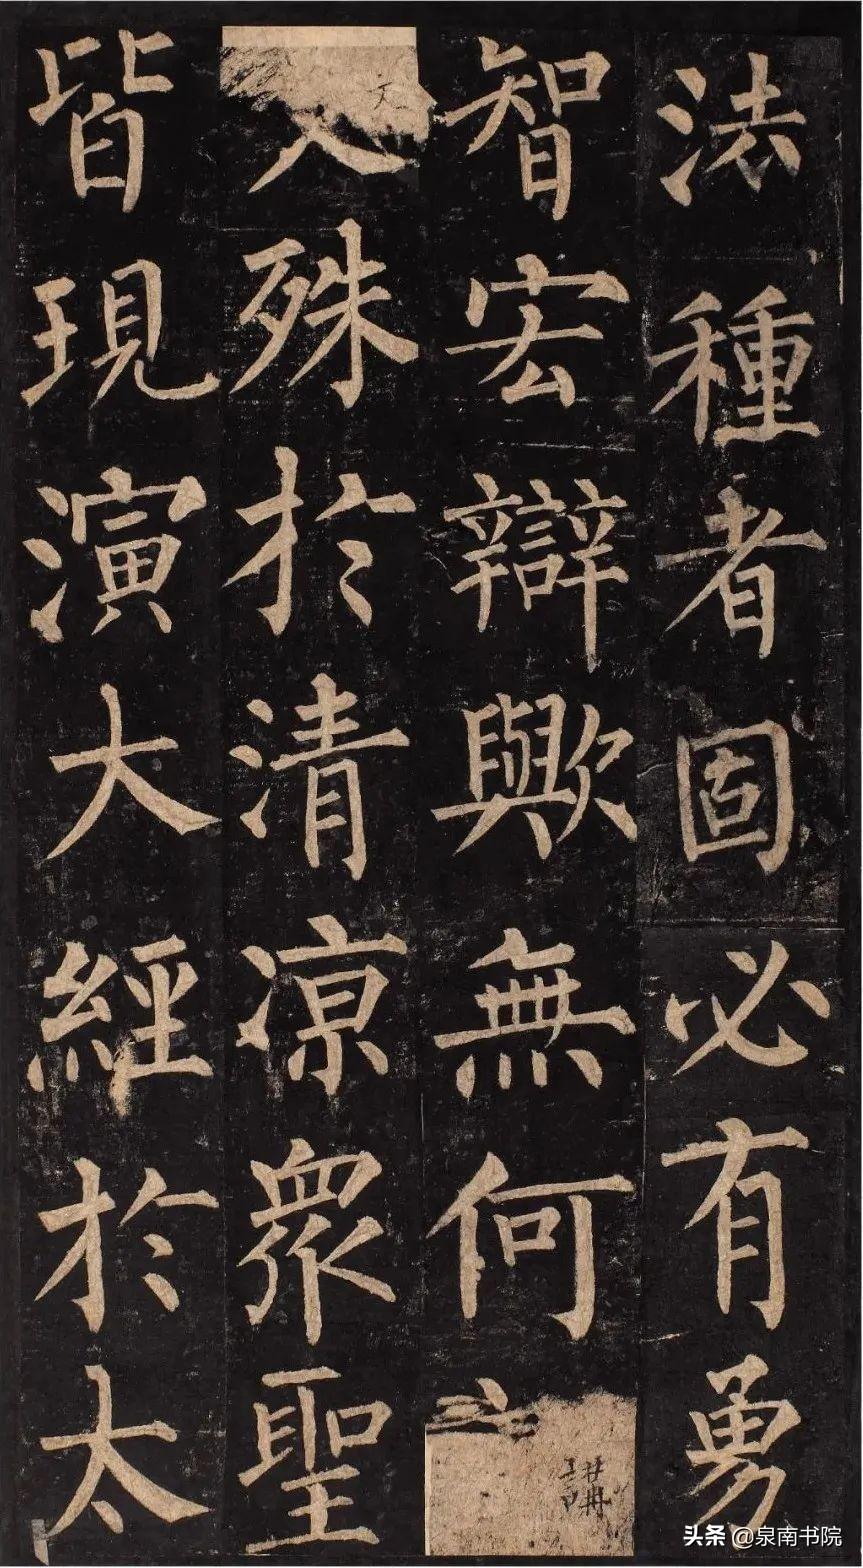 法種者固必有勇
智宏辯歟無何
文殊於清涼眾聖
皆現演大經於太
講
头条 @泉南书院